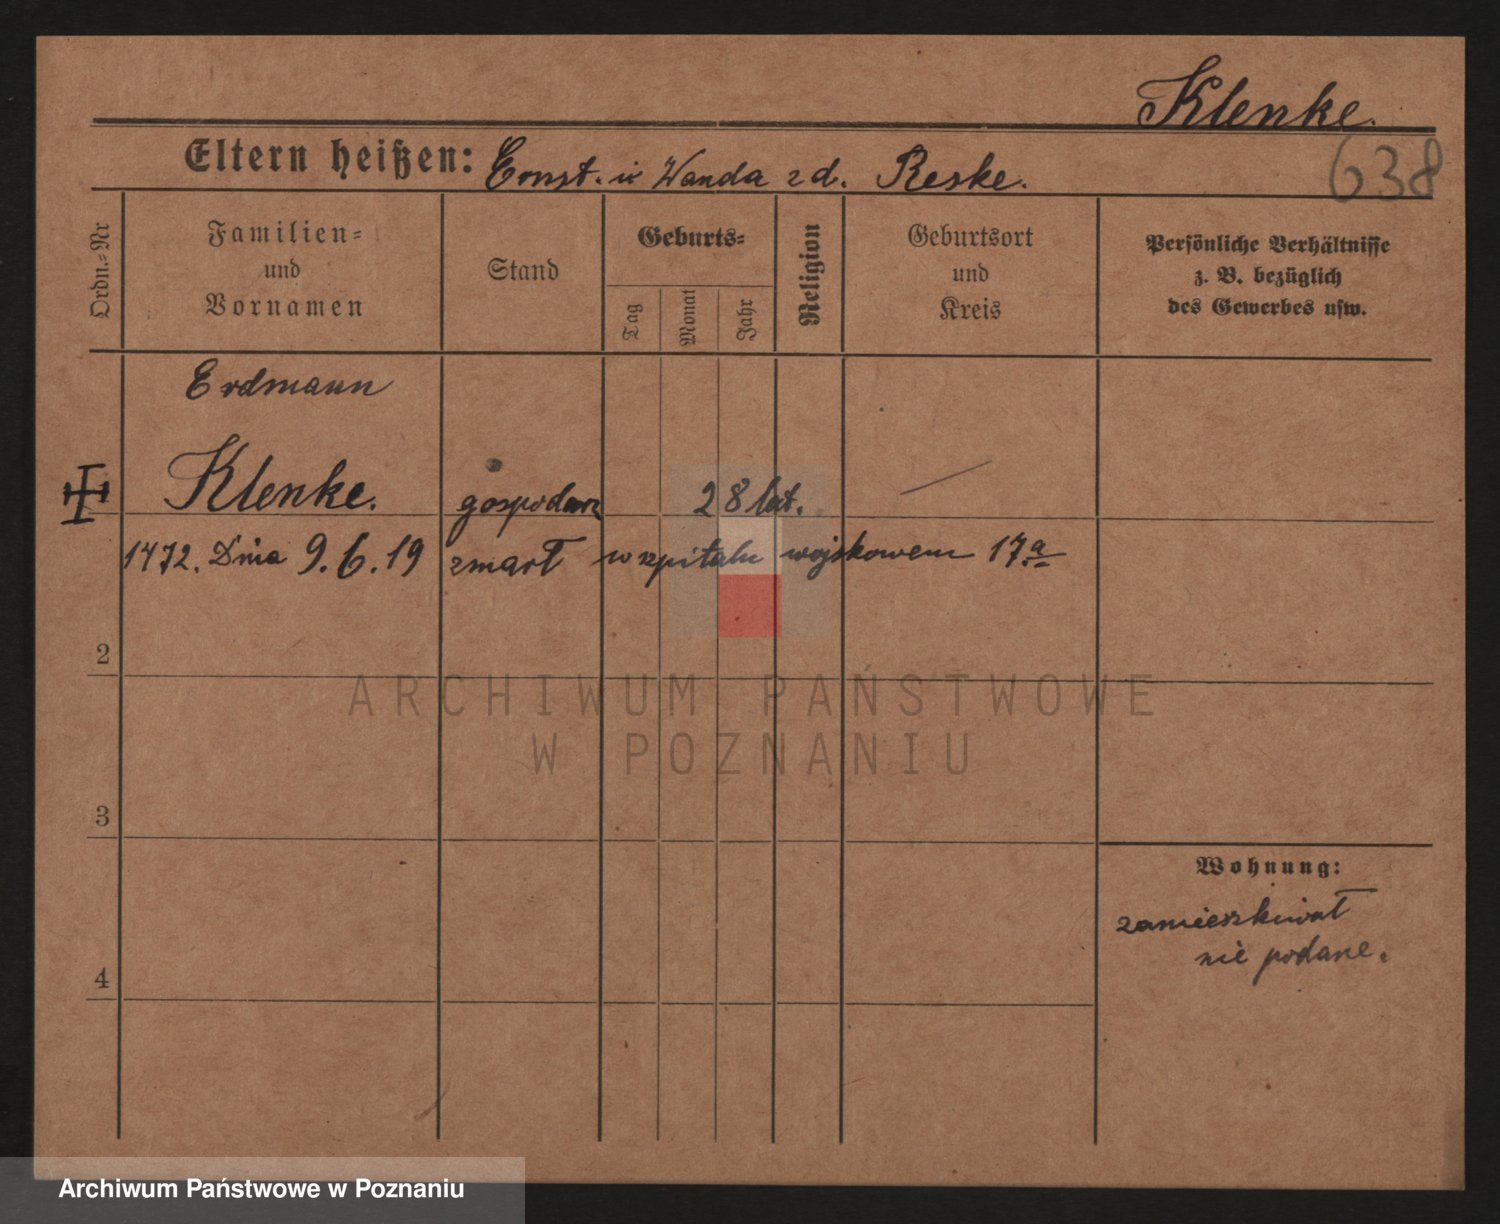 Klenke.
638
Eltern heißen: Ernst. i Wanda zd. Reske.
Ordn.-Nr
Familien-
und
Vornamen
Stand
Geburts-
Tag
Monat
Jahr
Religion
Geburtsort
und
Kreis
Persönliche Verhältnisse
z. B. bezüglich
des Gewerbes usw.
Erdmann
Klenke. gospodarz 28 lat. —
1472. Dnia 9.6.19 zmarł w szpitalu wojskowem 17.a
2
3
4
Wohnung:
zamieszkiwał
nie podane.
ARCHIWUM PAŃSTWOWE
W POZNANIU
Archiwum Państwowe w Poznaniu